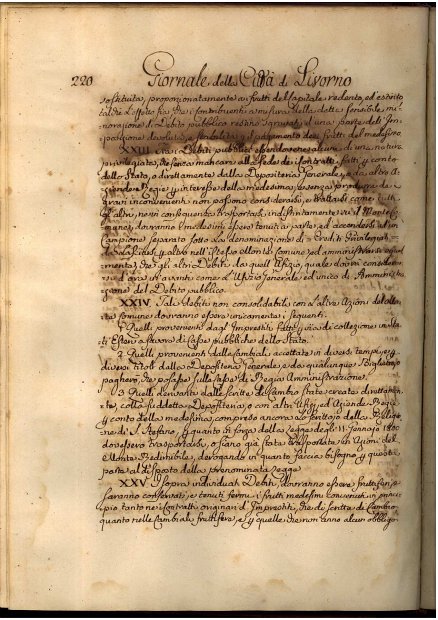 220 Giornale della Città di Livorno
sostituita, proporzionatamente ai frutti del Capitale redento, ed estinto
tal che gli i contribuenti a misura della detta sensibile mi-
norazione di Debito pubblico restino sgravati d'una parte dell'Im-
posizione devoluta, e stabilita pel pagamento dei frutti del medesimo
XXIII. I Debiti pubblici essendovene alcuni di una natura
privilegiata, che senza mancare alla fede dei Contratti, fatti per conto
dello Stato, o direttamente dalla Depositeria Generale, e da altre A-
ziende Regie per interesse della medesima, e senza produrre dei
gravi inconvenienti non possono considerarsi, e trattarsi come tutti
gli altri, ne in conseguenza trasportarsi indistintamente sul Monte Co-
mune, dovranno i medesimi essere tenuti a parte, ed accendersi ad un
Campione separato sotto la denominazione di Crediti
nell'istesso Monte Comune, ed amministrati
mente gli altri Debiti da quell'Ufizio, quale dovrà considerar-
si d'ora in avanti come l'Ufizio Generale, ed unico di Amministra-
zione del Debito pubblico.
XXIV. Tali debiti non consolidabili con l'altre Azioni del Mon-
te Comune dovranno essere unicamente i seguenti.
1. Quelli provenienti dagl'Imprestiti fatti per via di collezione in Sta-
ti Esteri a favore di Casse pubbliche dello Stato.
2. Quelli provenienti dalle Cambiali accettate in diversi tempi, e per
diversi titoli dalla Depositeria Generale, e da qualunque Biglietto
pagherò, che posasse sulle Casse di Regia Amministrazione.
3. Quelli derivanti dalle scritte di Cambio state create direttamen-
te colla suddetta Depositeria, o con altri Ufizi, ed Aziende Regie
per conto della medesima, compreso ancora lo scrittojo della Religio-
ne di S. Stefano, per quanto in forza della Legge degli 11. Gennajo 1800
dovessero trasportarsi, o siano già state trasportate in Azioni del
Monte Redimibile, derogando in quanto faccia bisogno per questa
parte al disposto della prenominata Legge.
XXV. I sopra individuati Debiti, dovranno essere fruttiferi, e
saranno conservati, e tenuti fermi i frutti medesimi convenuti in princi-
pio tanto ne' Contratti originari d'Imprestiti, che di scritta di Cambio,
quanto nelle Cambiali fruttifere, e per quelle che non anno alcun obbligo